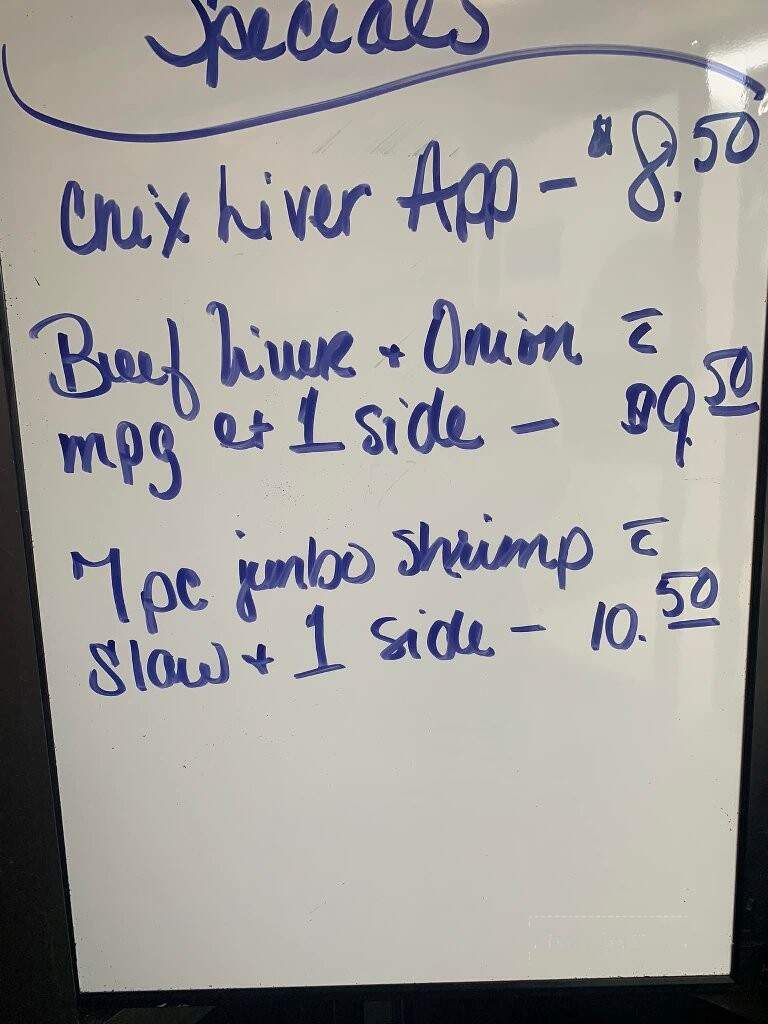 Specials
Chix Liver App - $8.50
Beef Liver + Onion c̄
mpg et 1 side - $9.50
7pc jumbo shrimp c̄
Slaw + 1 side - 10.50